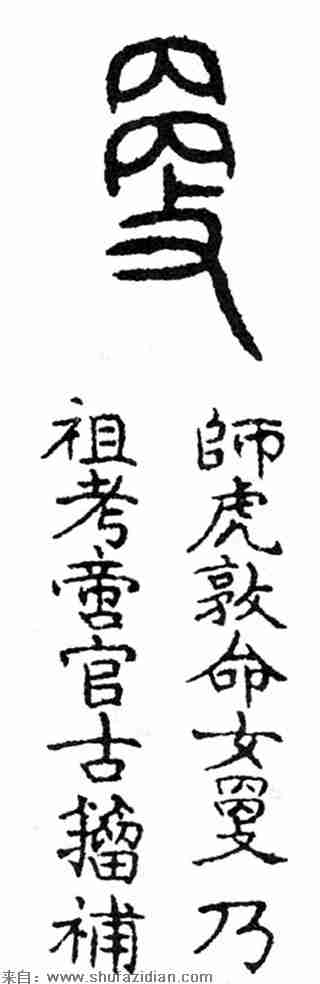 師虎敦命女乃
祖考啻官古籒補
来自：www.shufazidian.com